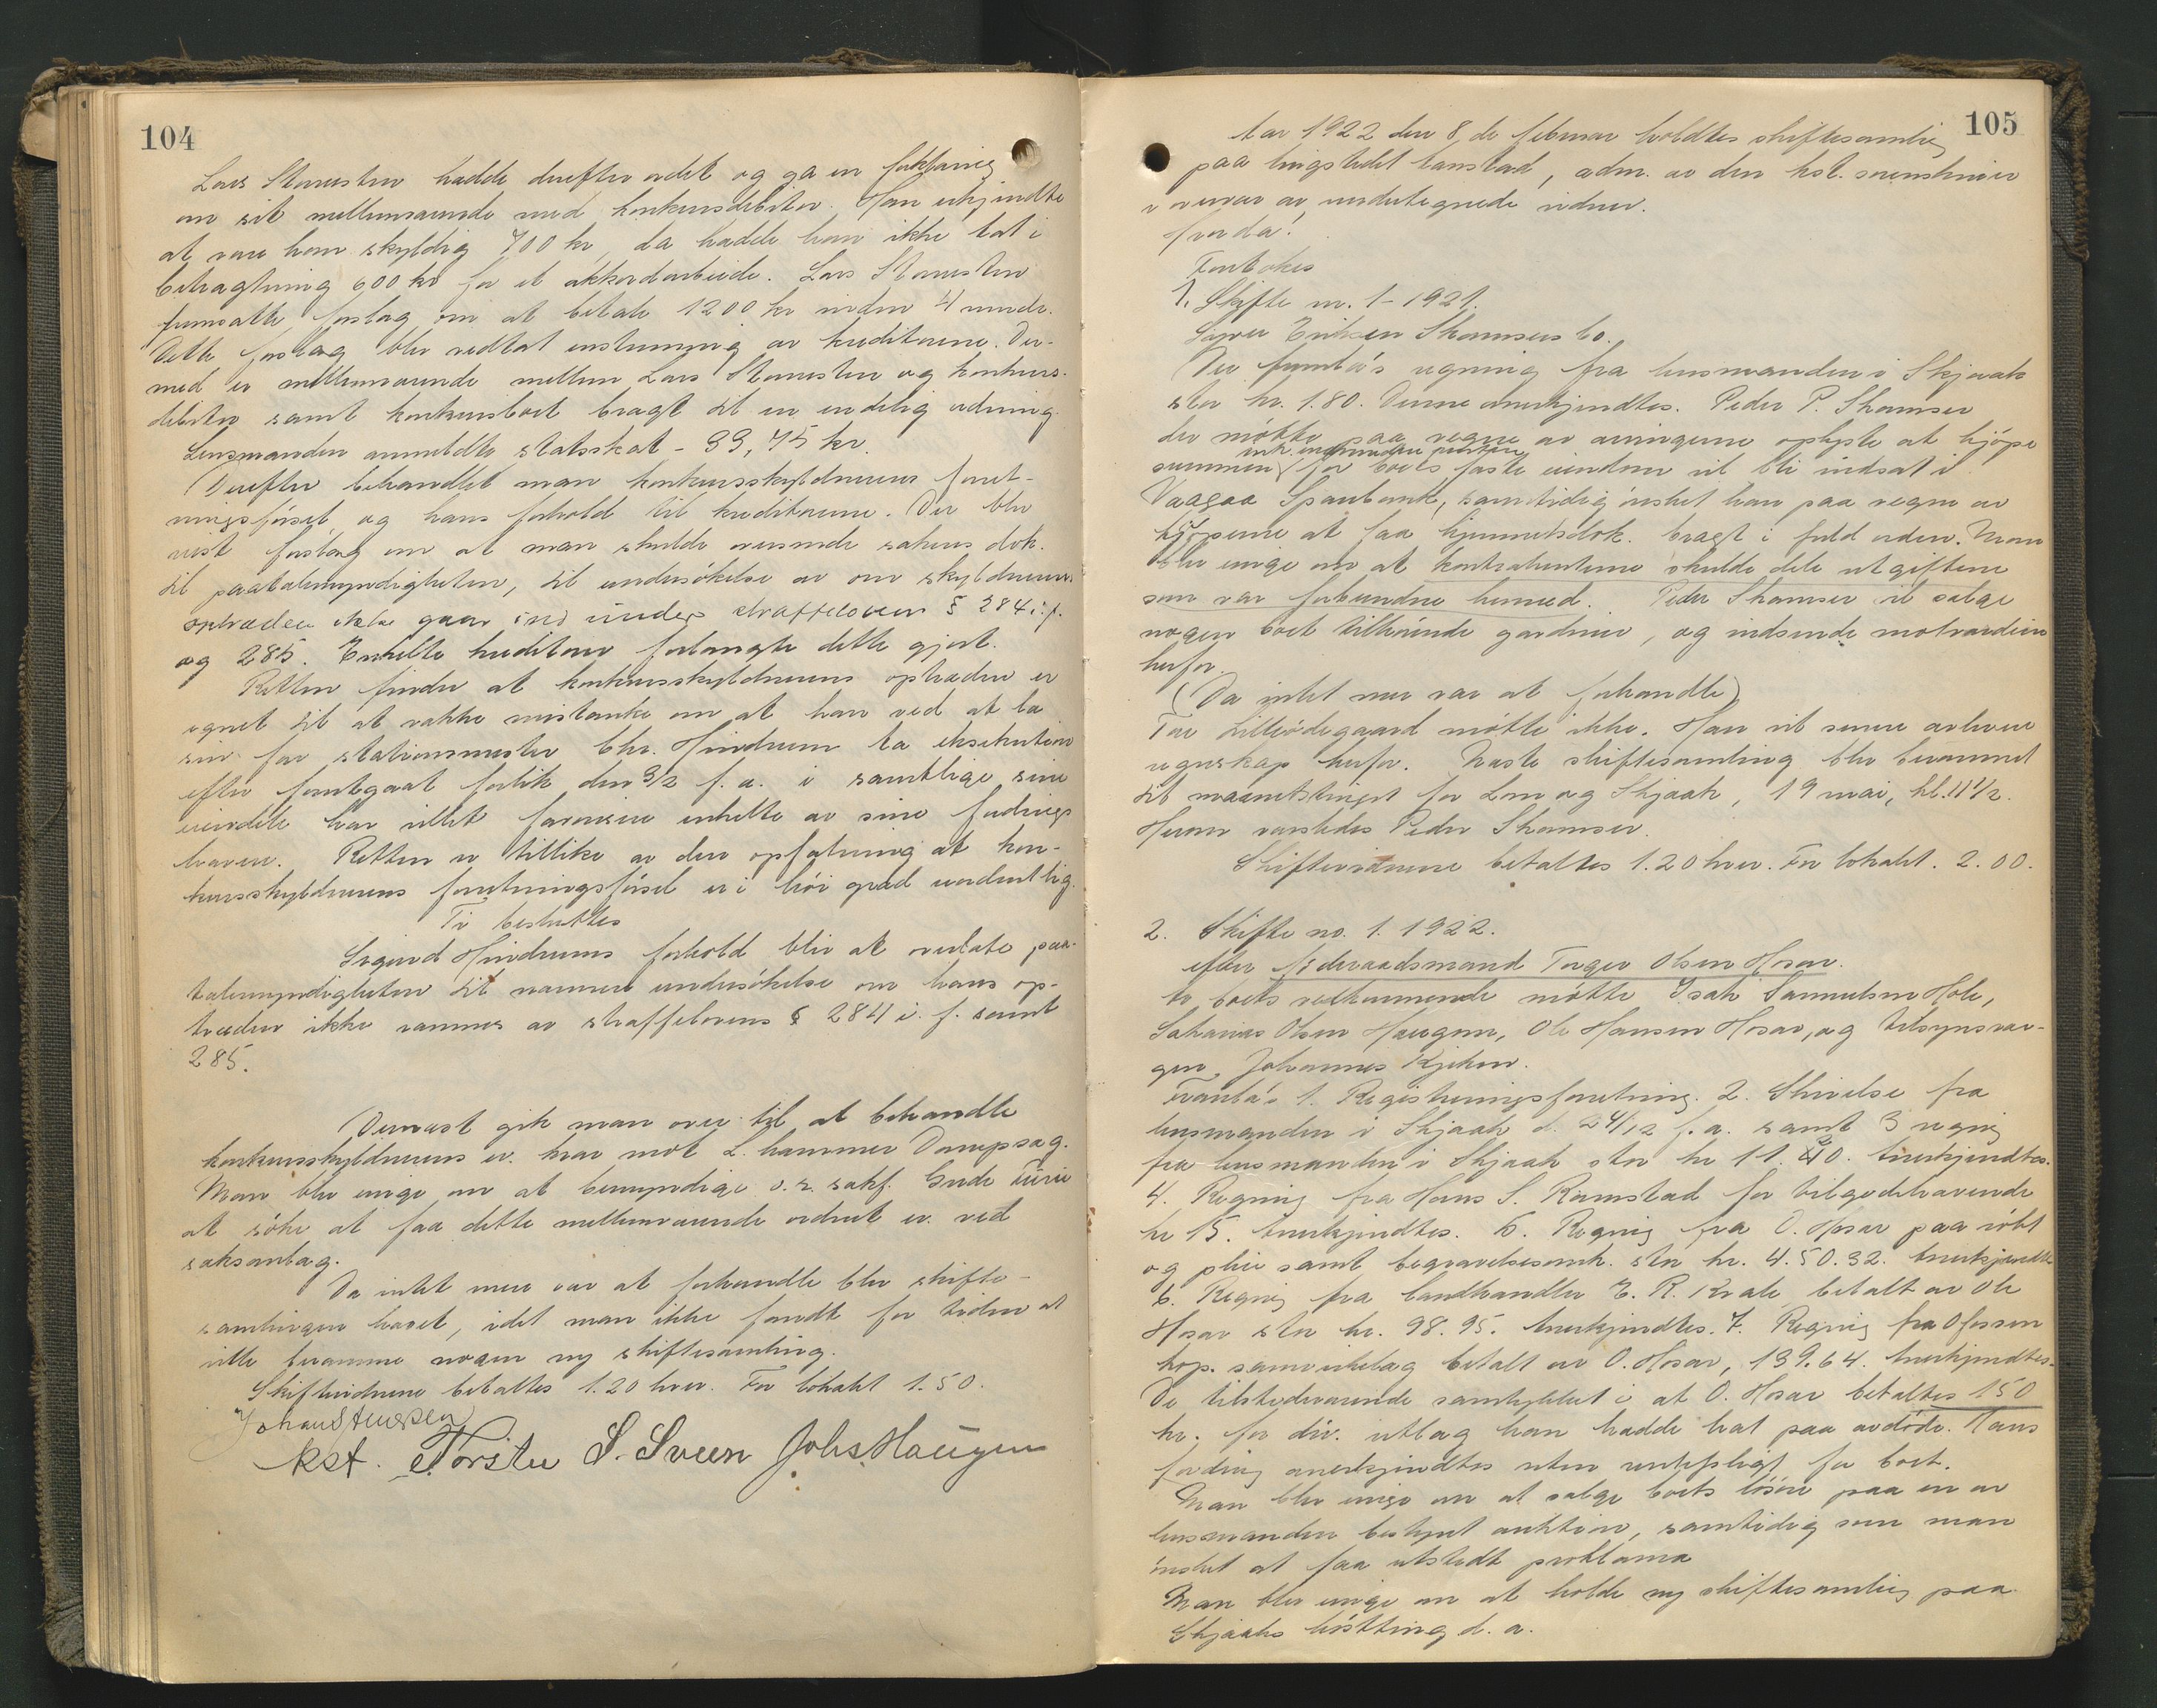 104
Lars Stamsten hadde derefter ordet og ga en forklaring
om sit mellemværende med konkursdebitor. Han erkjendte
at være ham skyldig 700 kr, da hadde han ikke tat i
betragtning 600 kr for et akkordarbeide. Lars Stamsten
fremsatte forslag om at betale 1200 kr inden 4 mndr.
Dette forslag blev vedtat enstemmig av kreditorene. Der-
med er mellemværende mellem Lars Stamsten og konkurs-
debitor samt konkursboet bragt til en endelig ordning.
Lensmanden anmeldte statsskat - 33,75 kr.
Derefter behandlet man konkursskyldnerens foret-
ningsførsel og hans forhold til kreditorene. Der blev
reist forslag om at man skulde oversende sakens dok.
til paatalemyndigheten, til undersøkelse av om skyldnerens
optræden ikke gaar ind under straffeloven § 284 i.f.
og 285. Enkelte kreditorer forlangte dette gjort.
Retten finder at konkursskyldnerens optræden er
egnet til at vække mistanke om at han ved at la
sin far stationsmester Chr. Hindrum ta eksekution
efter forutgaat forlik den 3/2 f. a. i samtlige sine
eiendele har villet favorisere enkelte av sine fordrings-
havere. Retten er tillike av den opfatning at kon-
kursskyldnerens foretningsførsel er i høi grad uordentlig.
Ti besluttes
Sigurd Hindrums forhold blir at overlate paa-
talemyndigheten til nærmere undersøkelse om hans op-
træden ikke rammes av straffelovens § 284 i. f. samt
285.
Dernæst gik man over til at behandle
konkursskyldnerens ev. krav mot L.hammer Dampsag.
Man blev enige om at bemyndige o.r. sakf. Gude Furu
at søke at faa dette mellemværende ordnet ev. ved
saksanlæg.
Da intet mere var at forhandle blev skifte-
samlingen hævet, idet man ikke fandt for tiden at
ville beramme nogen ny skiftesamling.
Skiftevidnene betaltes 1.20 hver. For lokalet 1.50.
Johan Stuepen
kst. Torsten S. Sveen Johs Haugen
105
Aar 1922 den 8de februar holdtes skiftesamling
paa tingstedet Ramstad, adm. av den kst. sorenskriver
i overvær av undertegnede vidner.
Forda:
Foretokes
1. Skifte nr. 1 - 1921.
Syver Eriksen Skamsers bo.
Der fremlaas regning fra lensmanden i Skjaak
stor kr. 1.80. Denne anerkjendtes. Peder P. Skamser
der møtte paa vegne av arvingerne oplyste at kjøpe-
summen for boets faste eiendom vil bli indsat i
Vaagaa Sparebank, samtidig ønsket han paa vegne av
kjøperne at faa hjemmelsdok. bragt i fuld orden. Man
blev enige om at kontrahenterne skulde dele utgiftene
som var forbundne hermed. Peder Skamser vil sælge
nogen boet tilhørende gardiner, og indsende motværdien
herfor.
(Da intet mer var at forhandle)
Tor Lilleødegaard møtte ikke. Han vil senere avlevere
regnskap herfor. Næste skiftesamling blev berammet
til maanetstinget for Lom og Skjaak, 19 mai, kl. 11 1/2.
Herom varsledes Peder Skamser.
Skiftevidnene betaltes 1.20 hver. For lokalet. 2.00.
2. Skifte no. 1. 1922.
efter føderaadsmand Torger Olsen Hosar.
Av boets vedkommende møtte Isak Samuelsen Hole,
Sakarias Olsen Haugen, Ole Hansen Hosar, og tilsynsvær-
gen, Johannes Kjeken.
Fremlaas 1. Registreringsforetning. 2. Skrivelse fra
lensmanden i Skjaak d. 24/12 f. a. samt 3 regning
fra lensmanden i Skjaak stor kr 11.40. Anerkjendtes.
4. Regning fra Hans S. Ramstad for tilgodehavende
kr 15. Anerkjendtes. 5. Regning fra O. Hosar paa røkt
og pleie samt begravelsesomk. stor kr. 4.50.32. Anerkjendtes
6. Regning fra landhandler E. R. Kvale betalt av Ole
Hosar stor kr. 98.95. Anerkjendtes. 7. Regning fra Ofossen
kop. samvirkelag betalt av O. Hosar, 139.64. Anerkjendtes.
De tilstedeværende samtykket i at O. Hosar betaltes 150
kr. for div. utlæg han hadde hat paa avdøde. Hans
fordring anerkjendtes uten for boet.
Man blev enige om at sælge boets løsøre paa en av
lensmanden bestyret auktion, samtidig som man
ønsket at faa utstedt proklama
Man blev enige om at holde ny skiftesamling paa
Skjaaks høstting d. a.